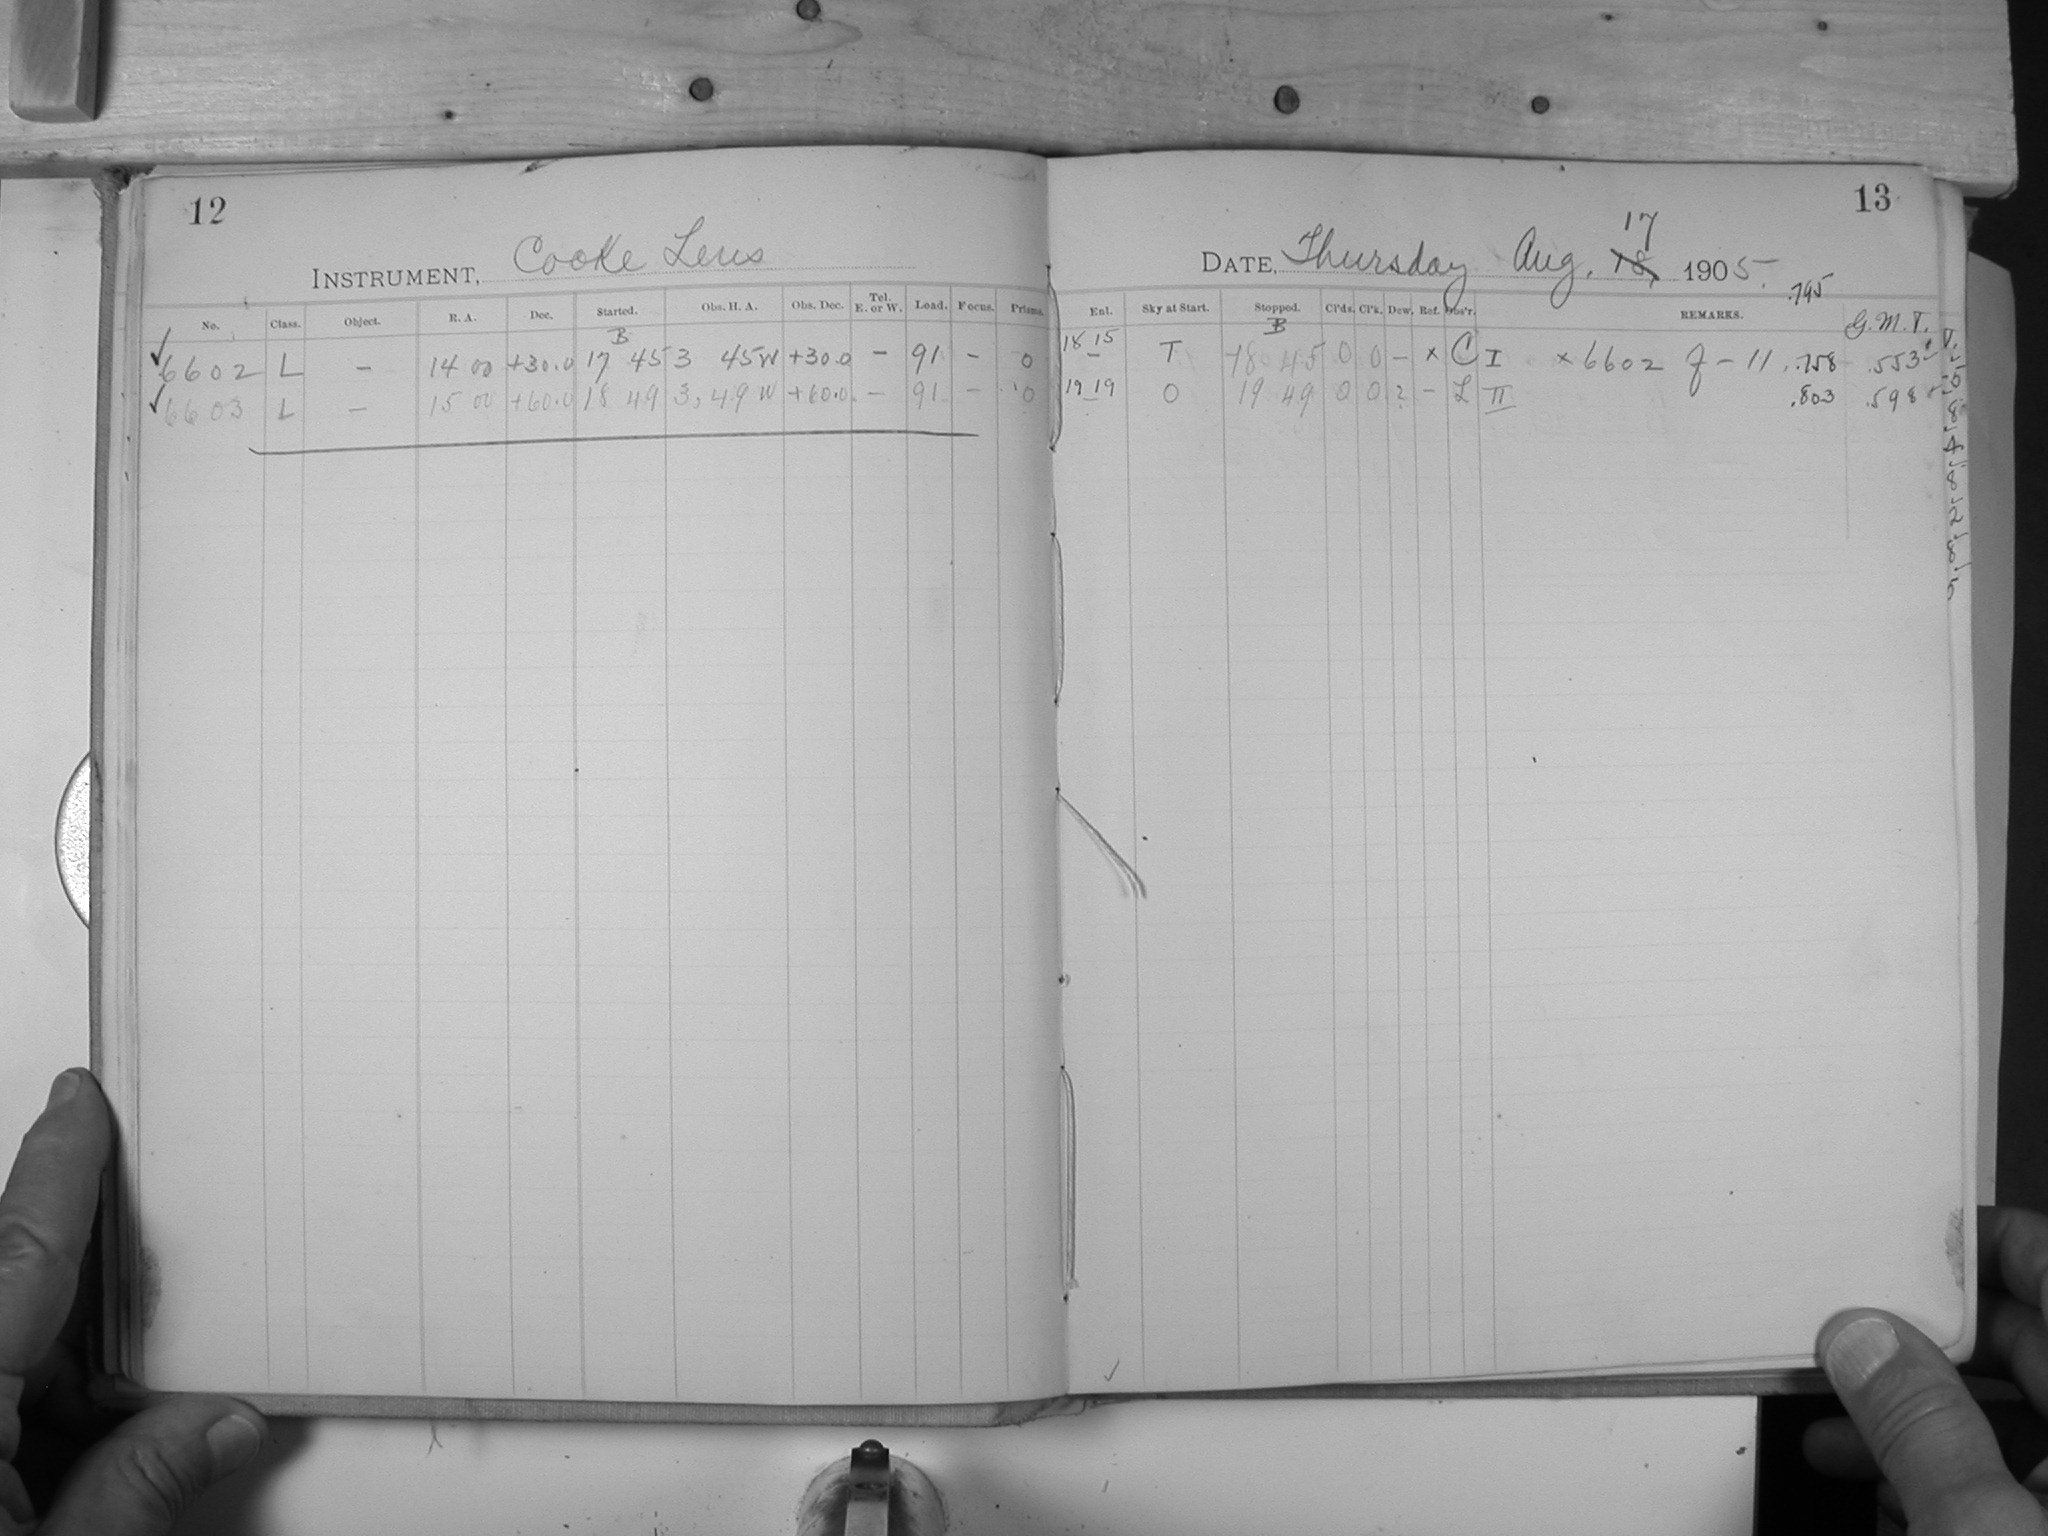 12
INSTRUMENT, Cooke Lens
No. Class. Object. R. A. Dec. Started. Obs. H. A. Obs. Dec. Tel. E. or W. Load. Focus. Prisms.
B
✓6602 L – 14 00 +30.0 17 45 3 45W +30.0 – 91 – 0
✓6603 L – 15 00 +60.0 18 49 3,49W +60.0 – 91 – 0
13
17
DATE, Thursday Aug. 18, 1905.
.795
Enl. Sky at Start. Stopped. Cl'ds. Cl'k. Dew. Ref. Obs'r. REMARKS. G.M.T.
B
18 15
– T 18 45 0 0 – × C I ×6602 f – 11. .758 .553
19 19
– 0 19 49 0 0 2 – L II .803 .598